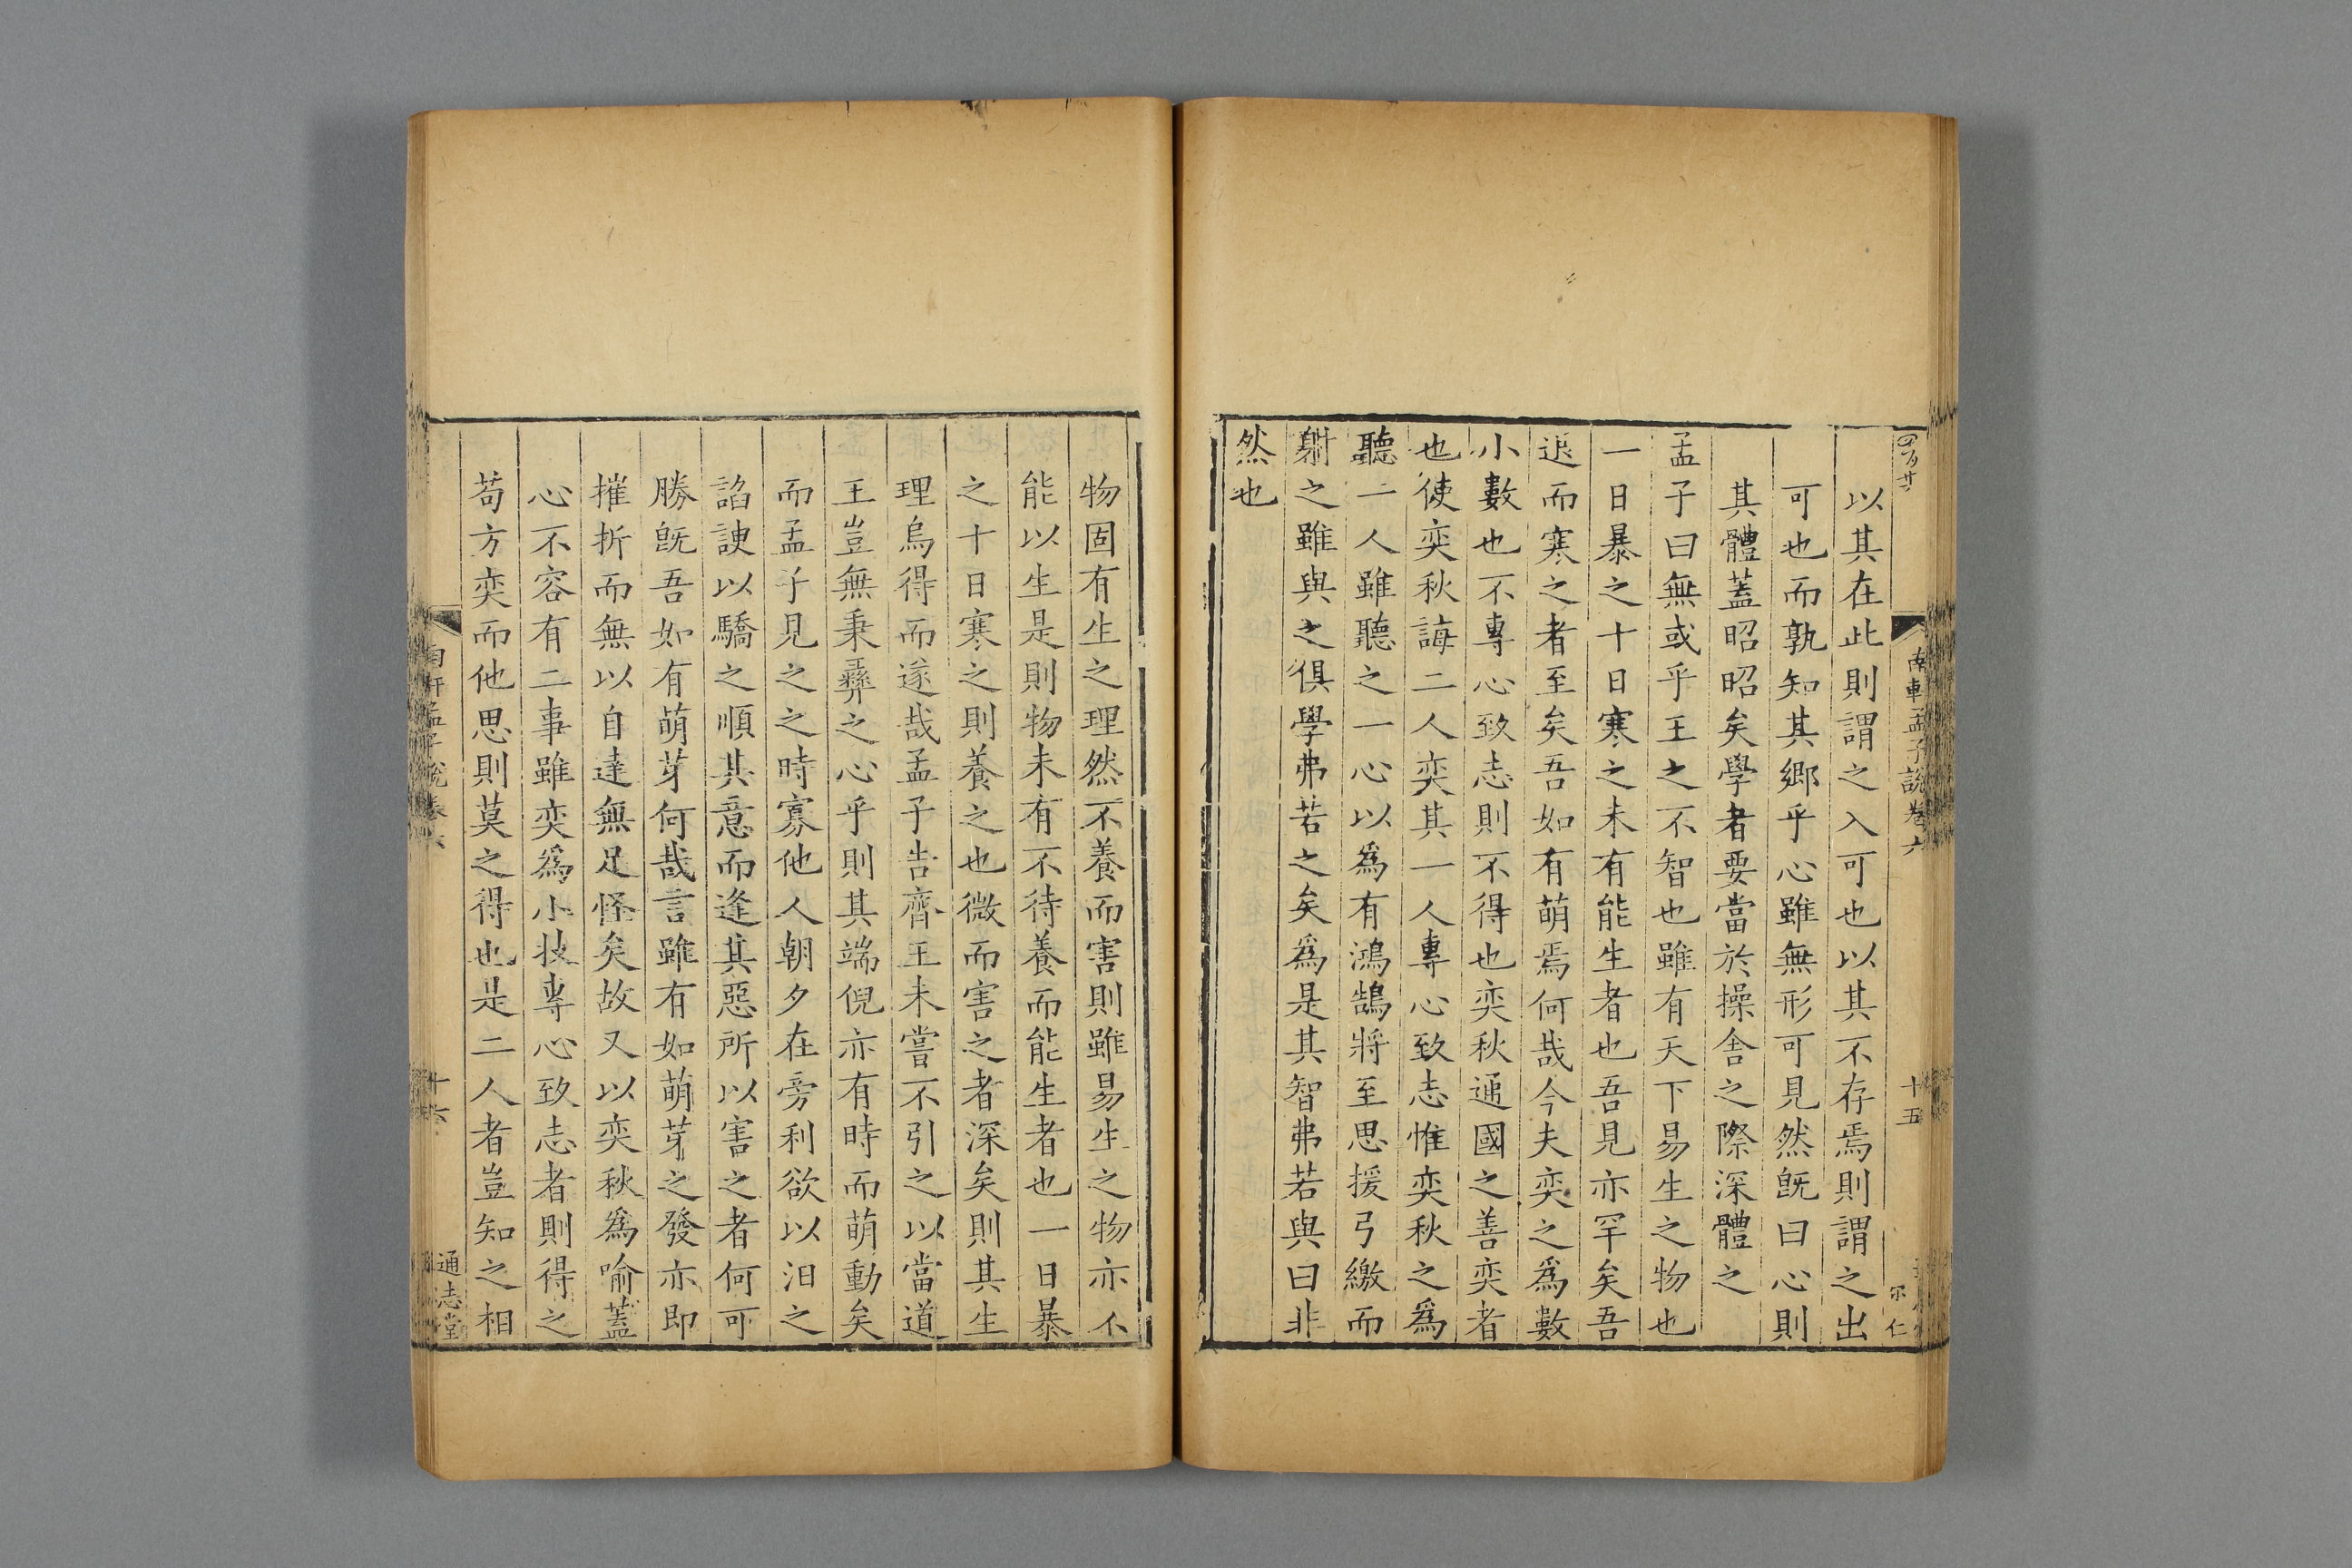 南軒孟子說卷六
十五
以其在此則謂之入可也以其不存焉則謂之出
可也而孰知其鄉乎心雖無形可見然旣曰心則
其體蓋昭昭矣學者要當於操舍之際深體之
孟子曰無或乎王之不智也雖有天下易生之物也
一日暴之十日寒之未有能生者也吾見亦罕矣吾
退而寒之者至矣吾如有萌焉何哉今夫奕之爲數
小數也不專心致志則不得也奕秋通國之善奕者
也使奕秋誨二人奕其一人專心致志惟奕秋之爲
聽一人雖聽之一心以爲有鴻鵠將至思援弓繳而
䠶之雖與之俱學弗若之矣爲是其智弗若與曰非
然也
物固有生之理然不養而害則雖易生之物亦不
能以生是則物未有不待養而能生者也一日暴
之十日寒之則養之也微而害之者深矣則其生
理烏得而遂哉孟子告齊王未嘗不引之以當道
王豈無秉彝之心乎則其端倪亦有時而萌動矣
而孟子見之之時寡他人朝夕在旁利欲以汨之
諂諛以驕之順其意而逢其惡所以害之者何可
勝旣吾如有萌芽何哉言雖有如萌芽之發亦即
摧折而無以自達無足怪矣故又以奕秋爲喻蓋
心不容有二事雖奕爲小技專心致志者則得之
苟方奕而他思則莫之得也是二人者豈知之相
南軒孟子說卷六
十六
通志堂